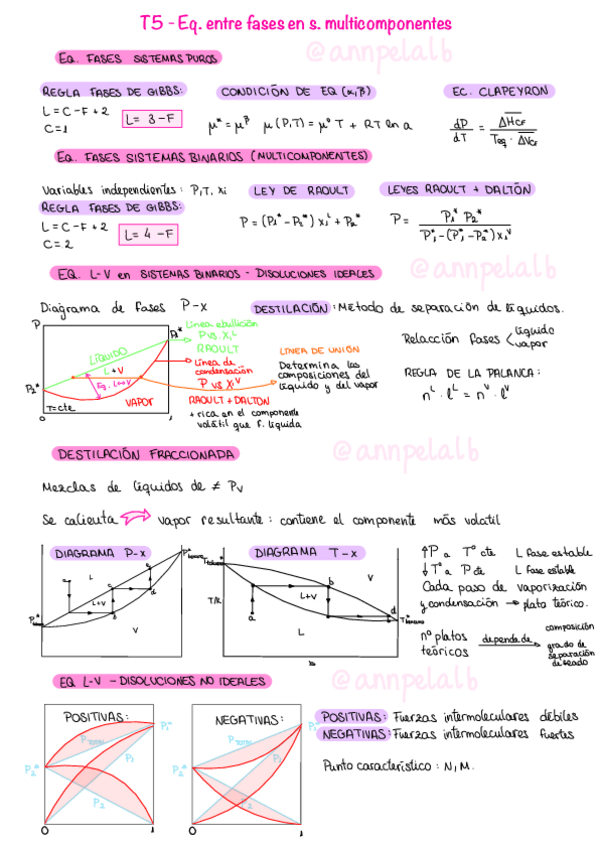 T5 - Eq. entre fases en s. multicomponentes
@annpelalb
EQ. FASES SISTEMAS PUROS
REGLA FASES DE GIBBS:
L = C - F + 2
C = 1
L = 3 - F
CONDICIÓN DE EQ (α,β)
μ^α = μ^β μ(P,T) = μ° T + RT ln a
EC. CLAPEYRON
dP/dT = ΔH̅cf / Teq · ΔV̅cf
EQ. FASES SISTEMAS BINARIOS (MULTICOMPONENTES)
Variables independientes: P, T, xi
REGLA FASES DE GIBBS:
L = C - F + 2
C = 2
L = 4 - F
LEY DE RAOULT
P = (P1* - P2*) x1^L + P2*
LEYES RAOULT + DALTON
P = P1* P2* / P1* - (P1* - P2*) x1^V
@annpelalb
EQ. L-V en SISTEMAS BINARIOS - DISOLUCIONES IDEALES
Diagrama de fases P-x
P
P1*
P2*
LÍQUIDO
L + V
Eq. L↔V
VAPOR
T = cte
0
1
Línea ebullición
P vs. x1^L
RAOULT
Línea de
condensación
P vs x1^V
RAOULT + DALTON
+ rica en el componente
volátil que f. líquida
LINEA DE UNIÓN
Determina las
composiciones del
líquido y del vapor
DESTILACIÓN: Método de separación de líquidos.
Relacción fases < líquido
vapor
REGLA DE LA PALANCA:
n^L · l^L = n^V · l^V
DESTILACIÓN FRACCIONADA
@annpelalb
Mezclas de líquidos de ≠ Pv
Se calienta ⇒ vapor resultante: contiene el componente más volatil
DIAGRAMA P-x
L
L+V
V
a
b
c
d
e
DIAGRAMA T-x
T/K
V
L+V
L
a
b
d
↑P a T° cte L fase estable
↓T° a P cte L fase estable
Cada paso de vaporización
y condensación → plato teórico.
nº platos
teóricos
depende de
composición
grado de
separación
deseado
EQ L-V - DISOLUCIONES NO IDEALES
@annpelalb
POSITIVAS:
P1*
P2*
P1
P2
0
1
NEGATIVAS:
P1*
P2*
P1
P2
0
1
POSITIVAS: Fuerzas intermoleculares débiles
NEGATIVAS: Fuerzas intermoleculares fuertes
Punto característico: N, M.